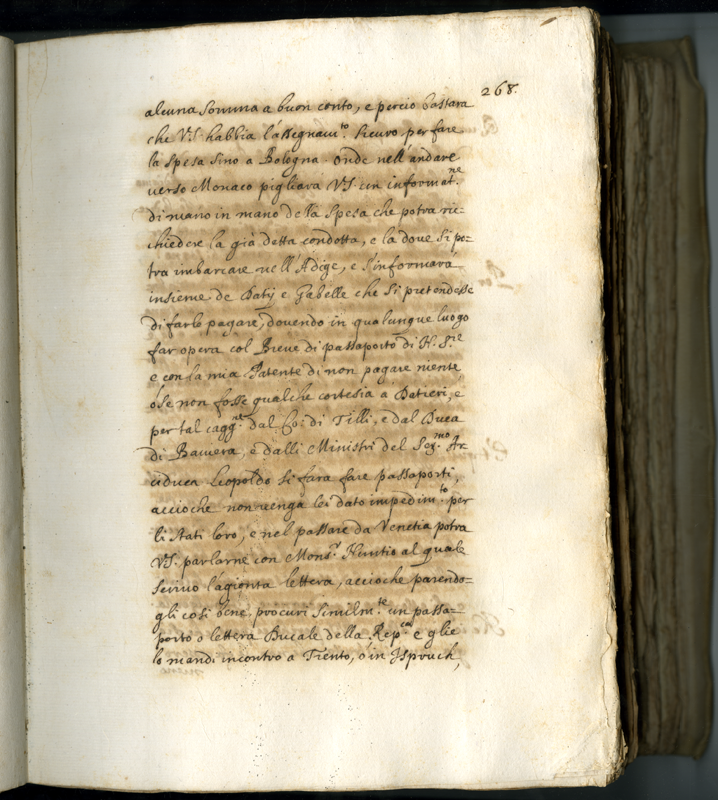 268.
alcuna somma a buon conto, e perciò bastara
che V.S. habbia l'assegnam.to sicuro per fare
la spesa sino a Bologna. Onde nell'andare
verso Monaco pigliara VS. un informat.ne
di mano in mano della spesa che potra ric=
chiedere la già detta condotta, e la dove si po=
tra imbarcare nell'Adige, e s'informarà
insieme de Datij e Gabelle che si pretendesse
di farle pagare, douendo in qualunque luogo
far opera col Breue di passaporto di N. S.re
e con la mia Patente di non pagare niente
ò se non fosse qualche cortesia a Datieri, e
per tal cagg.ne dal Co: di Tilli, e dal Duca
di Bauiera, e dalli Ministri del Ser.mo Ar
ciduca Leopoldo si fara fare passaporti,
accioche non uenga lei dato impedim.to per
li stati loro, e nel passare da Venetia potra
VS. parlarne con Mons.r Nuntio al quale
scriuo l'agionta lettera, accioche parendo=
gli così bene procuri similm.te un passa=
porto o lettera Ducale della Rep.ca e glie
lo mandi incontro a Trento, ò in Ispruch,